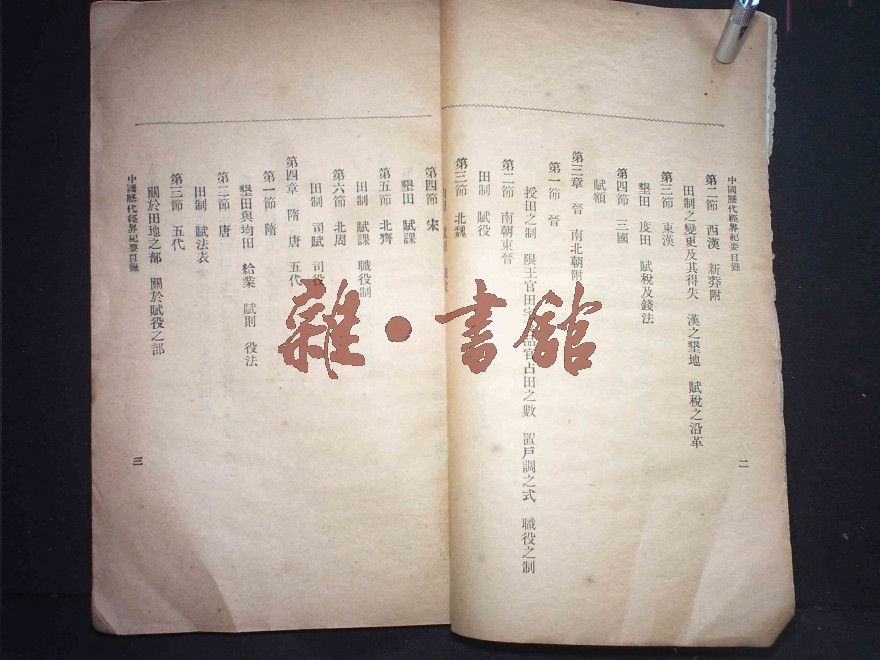 中國歷代經界紀要目錄
二
第二節　西漢　新莽附
田制之變更及其得失　漢之墾地　賦稅之沿革
第三節　東漢
墾田　度田　賦稅及錢法
第四節　三國
賦額
第三章　晉　南北朝附
第一節　晉
授田之制　限王官田宅　品官占田之數　置戶調之式　職役之制
第二節　南朝東晉
田制　賦役
第三節　北魏
第四節　宋
墾田　賦課
第五節　北齊
田制　賦課　職役制
第六節　北周
田制　司賦　司役
第四章　隋　唐　五代
第一節　隋
墾田與均田　給業　賦則　役法
第二節　唐
田制　賦法表
第三節　五代
關於田地之部　關於賦役之部
中國歷代經界紀要目錄
三
雜·書館